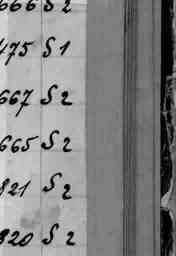 666 S 2
475 S 1
667 S 2
665 S 2
821 S 2
820 S 2